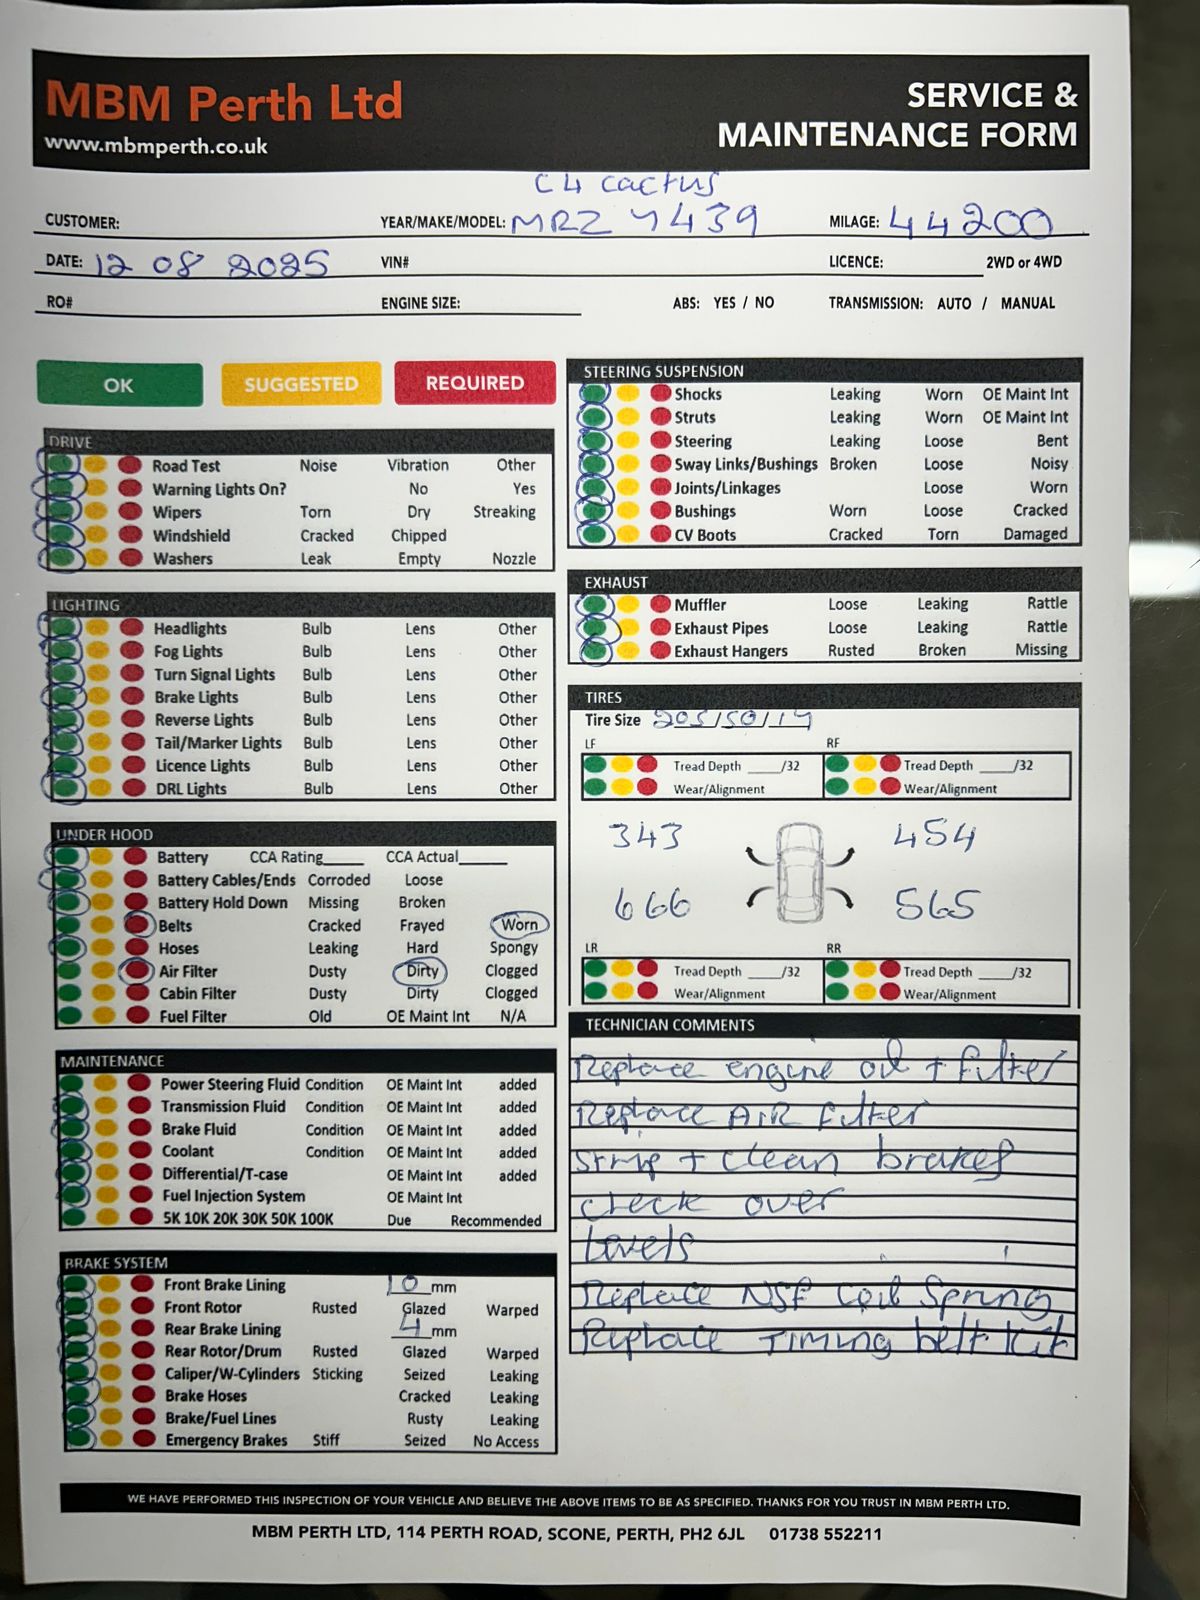 MBM Perth Ltd
www.mbmperth.co.uk
SERVICE &
MAINTENANCE FORM
C4 cactus
CUSTOMER: YEAR/MAKE/MODEL: MRZ 7439 MILAGE: 44200
DATE: 12 08 2025 VIN# LICENCE: 2WD or 4WD
RO# ENGINE SIZE: ABS: YES / NO TRANSMISSION: AUTO / MANUAL
OK SUGGESTED REQUIRED
DRIVE
Road Test Noise Vibration Other
Warning Lights On? No Yes
Wipers Torn Dry Streaking
Windshield Cracked Chipped
Washers Leak Empty Nozzle
LIGHTING
Headlights Bulb Lens Other
Fog Lights Bulb Lens Other
Turn Signal Lights Bulb Lens Other
Brake Lights Bulb Lens Other
Reverse Lights Bulb Lens Other
Tail/Marker Lights Bulb Lens Other
Licence Lights Bulb Lens Other
DRL Lights Bulb Lens Other
UNDER HOOD
Battery CCA Rating____ CCA Actual____
Battery Cables/Ends Corroded Loose
Battery Hold Down Missing Broken
Belts Cracked Frayed Worn
Hoses Leaking Hard Spongy
Air Filter Dusty Dirty Clogged
Cabin Filter Dusty Dirty Clogged
Fuel Filter Old OE Maint Int N/A
MAINTENANCE
Power Steering Fluid Condition OE Maint Int added
Transmission Fluid Condition OE Maint Int added
Brake Fluid Condition OE Maint Int added
Coolant Condition OE Maint Int added
Differential/T-case OE Maint Int added
Fuel Injection System OE Maint Int
5K 10K 20K 30K 50K 100K Due Recommended
BRAKE SYSTEM
Front Brake Lining 10 mm
Front Rotor Rusted Glazed Warped
Rear Brake Lining 4 mm
Rear Rotor/Drum Rusted Glazed Warped
Caliper/W-Cylinders Sticking Seized Leaking
Brake Hoses Cracked Leaking
Brake/Fuel Lines Rusty Leaking
Emergency Brakes Stiff Seized No Access
STEERING SUSPENSION
Shocks Leaking Worn OE Maint Int
Struts Leaking Worn OE Maint Int
Steering Leaking Loose Bent
Sway Links/Bushings Broken Loose Noisy
Joints/Linkages Loose Worn
Bushings Worn Loose Cracked
CV Boots Cracked Torn Damaged
EXHAUST
Muffler Loose Leaking Rattle
Exhaust Pipes Loose Leaking Rattle
Exhaust Hangers Rusted Broken Missing
TIRES
Tire Size 205/50/17
LF RF
Tread Depth ____/32 Tread Depth ____/32
Wear/Alignment Wear/Alignment
343 454
666 565
LR RR
Tread Depth ____/32 Tread Depth ____/32
Wear/Alignment Wear/Alignment
TECHNICIAN COMMENTS
Replace engine oil + filter
Replace AIR filter
Strip + clean brakes
check over
levels
Replace NSF coil spring
Replace Timing belt kit
WE HAVE PERFORMED THIS INSPECTION OF YOUR VEHICLE AND BELIEVE THE ABOVE ITEMS TO BE AS SPECIFIED. THANKS FOR YOU TRUST IN MBM PERTH LTD.
MBM PERTH LTD, 114 PERTH ROAD, SCONE, PERTH, PH2 6JL 01738 552211